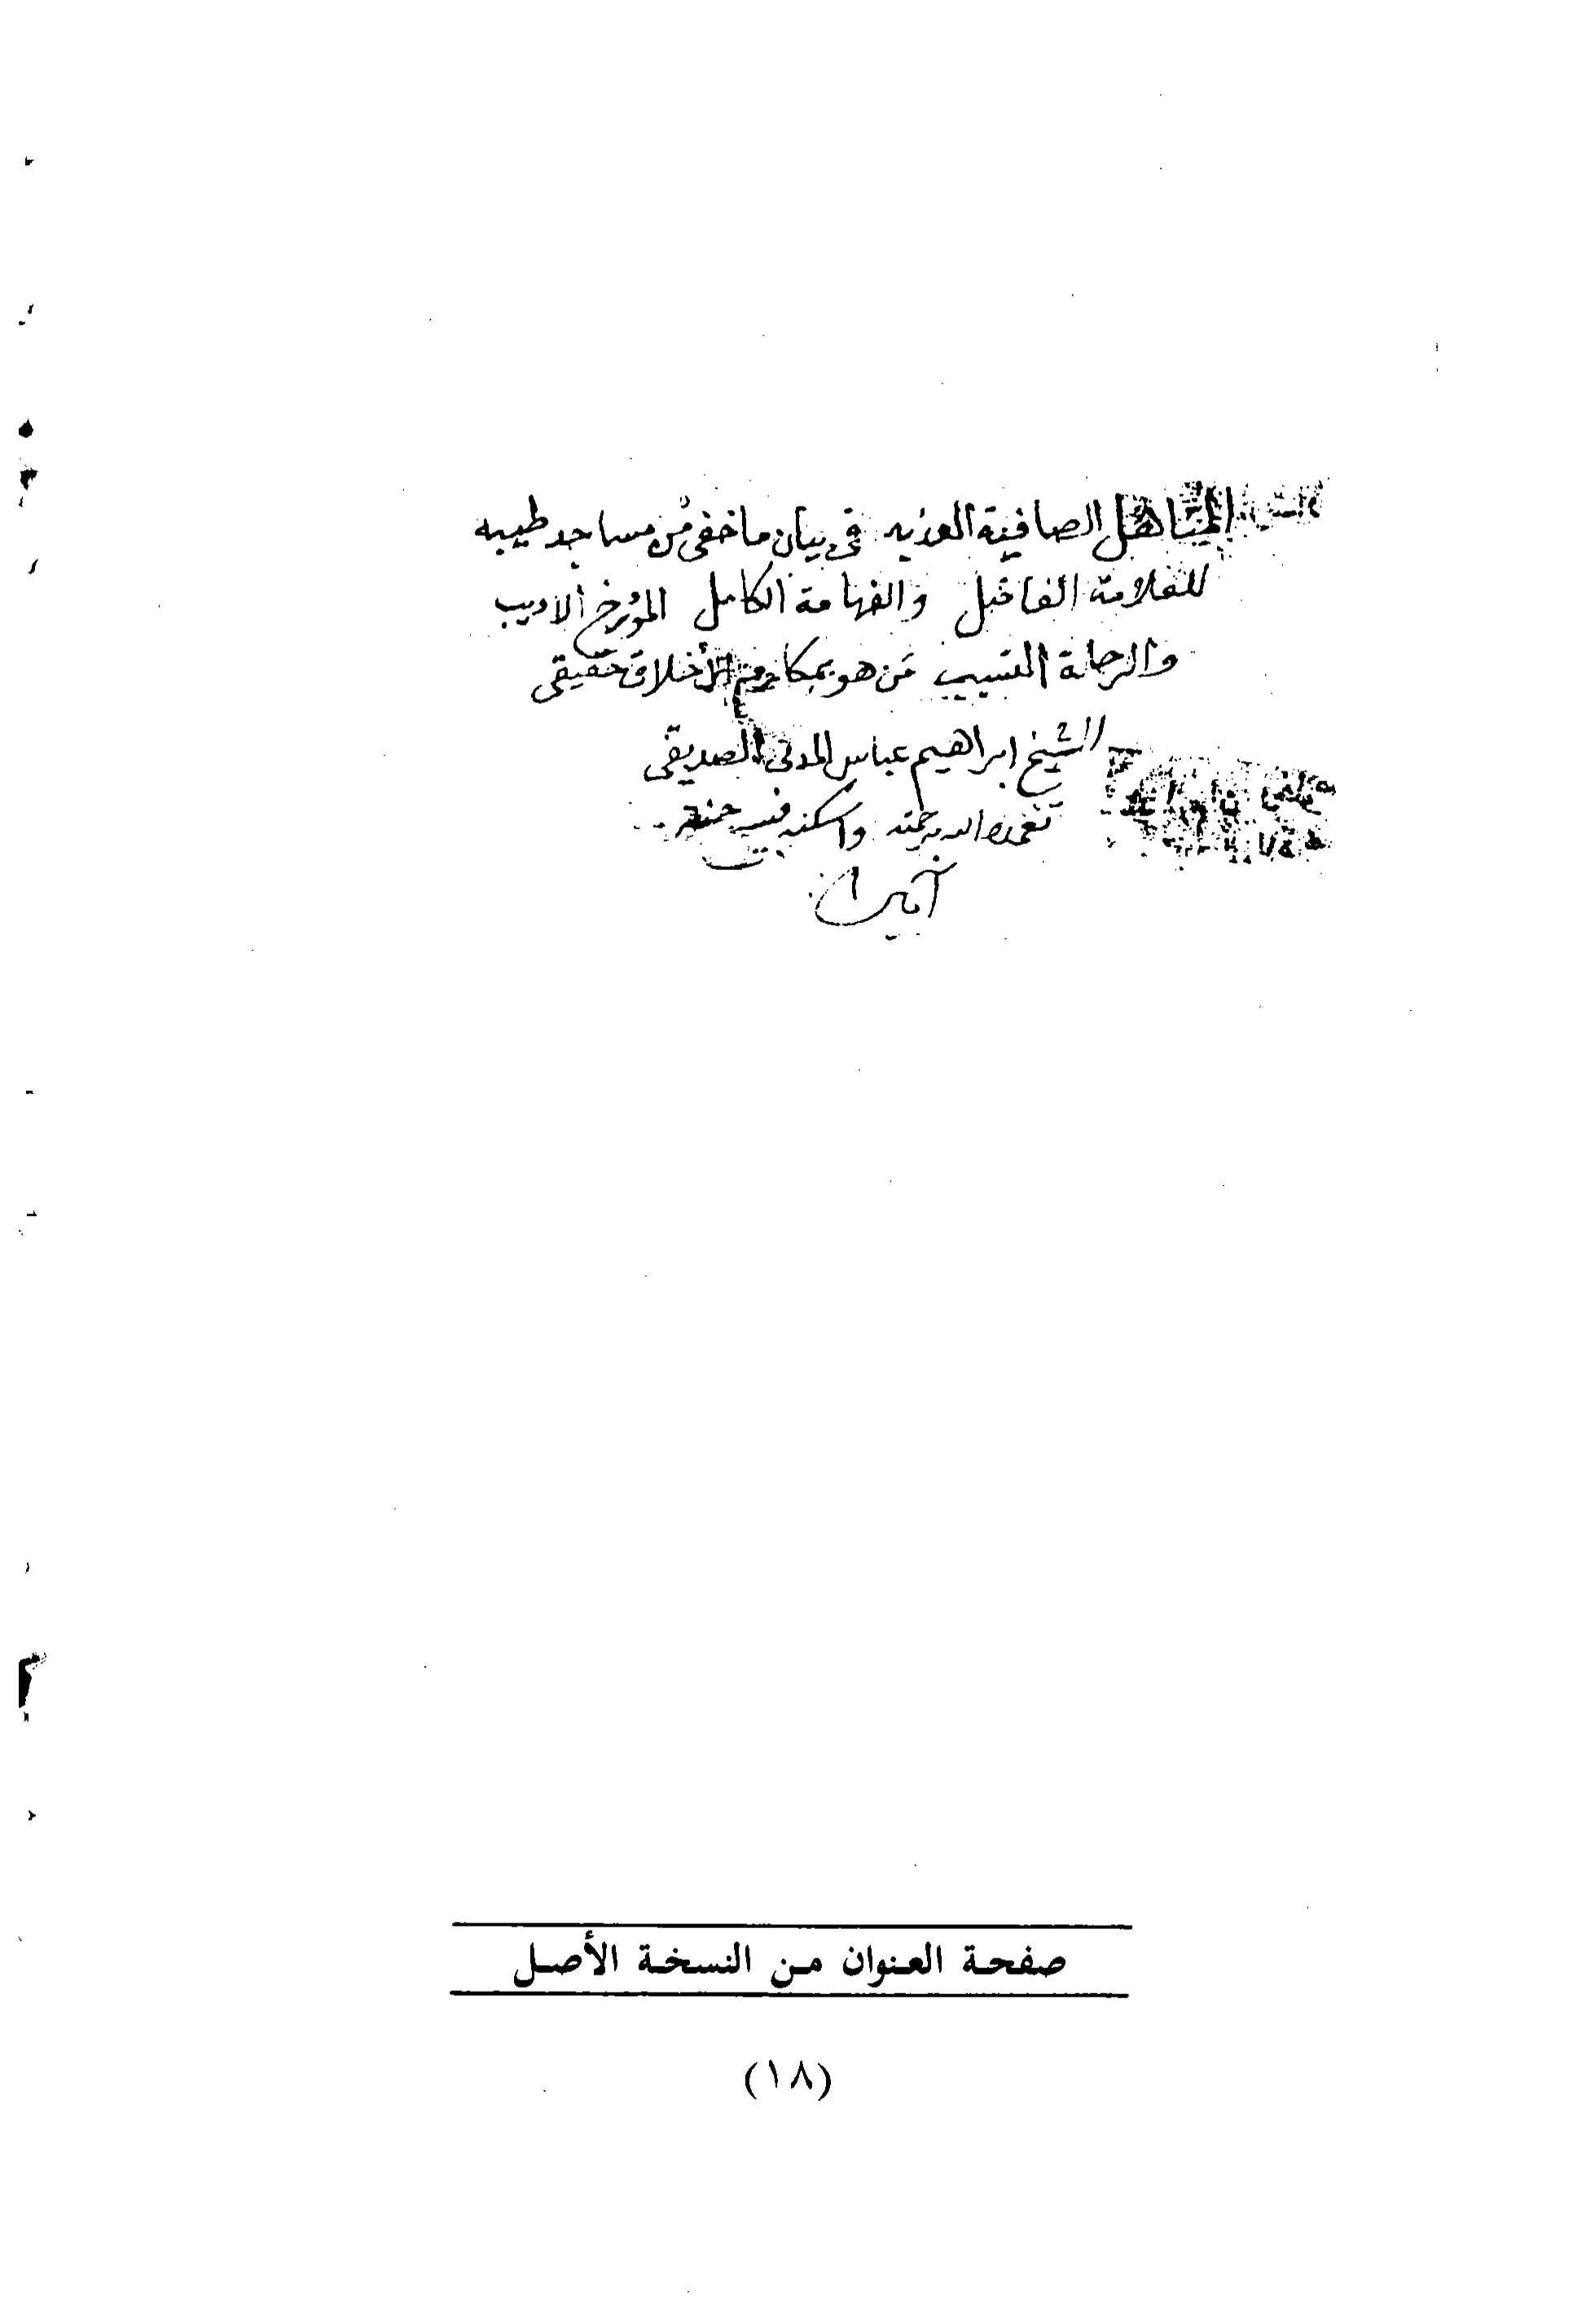 المناهل الصافية العذبه في بيان ما خفى من مساجد طيبه
للعلامة الفاضل والفهامة الكامل المؤرخ الاديب
والرحلة النسيب من هو بمكارم الأخلاق حقيقى
الشيخ ابراهيم عباس المدنى الصديقى
تغمده الله برحمته واسكنه فسيح جنته
آمين
صفحة العنوان من النسخة الأصل
(١٨)